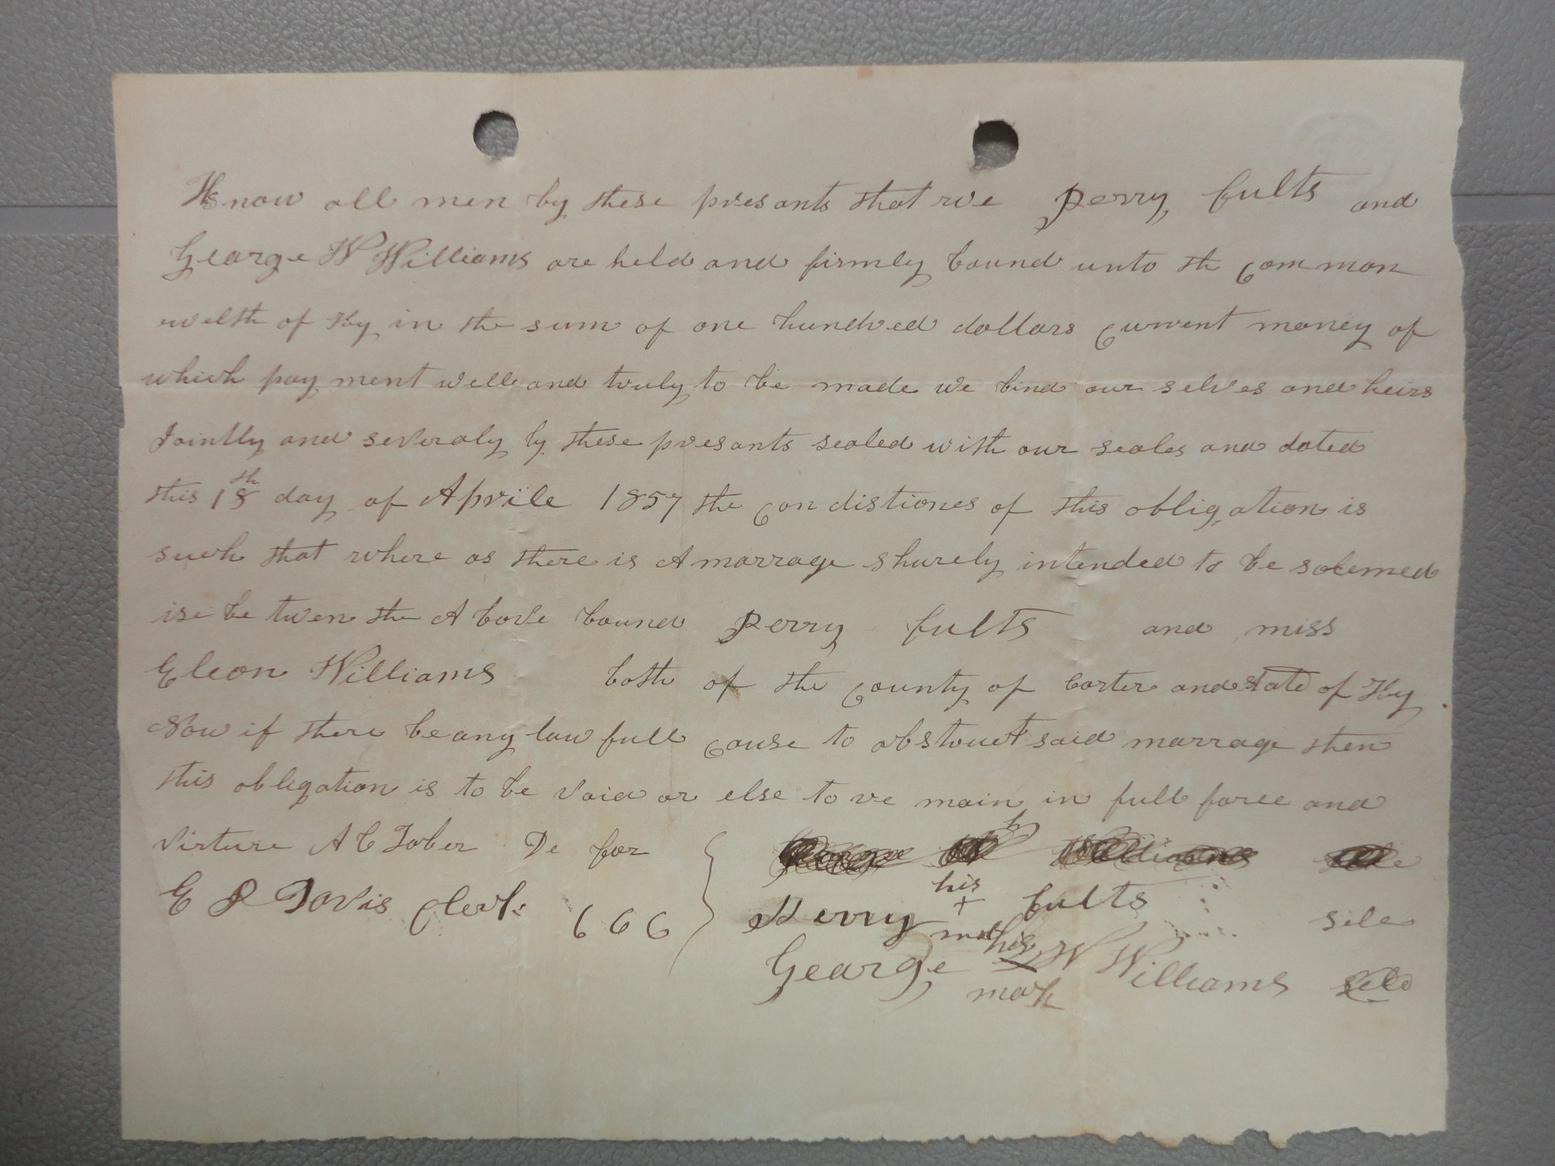 Know all men by these presants that we Perry fults and
George W Williams are held and firmly bound unto th common
welth of Ky in the sum of one hundred dollars current money of
which pay ment well and truly to be made we bind our selves and heirs
Jointly and severaly by these presants sealed with our seales and dated
this 18th day of Aprile 1857 the con distiones of this obligation is
such that where as there is A marrage shurely intended to be solemed
ise be twen the A bove bound Perry fults and miss
Eleon Williams both of the county of Carter and state of Ky
Now if there be any law full cause to obstruct said marrage then
this obligation is to be void or else to re main in full force and
virture A C Tober De for
his
E R Davis Clerk 666 Perry + fults sele
mark his
George X W Williams sele
mark